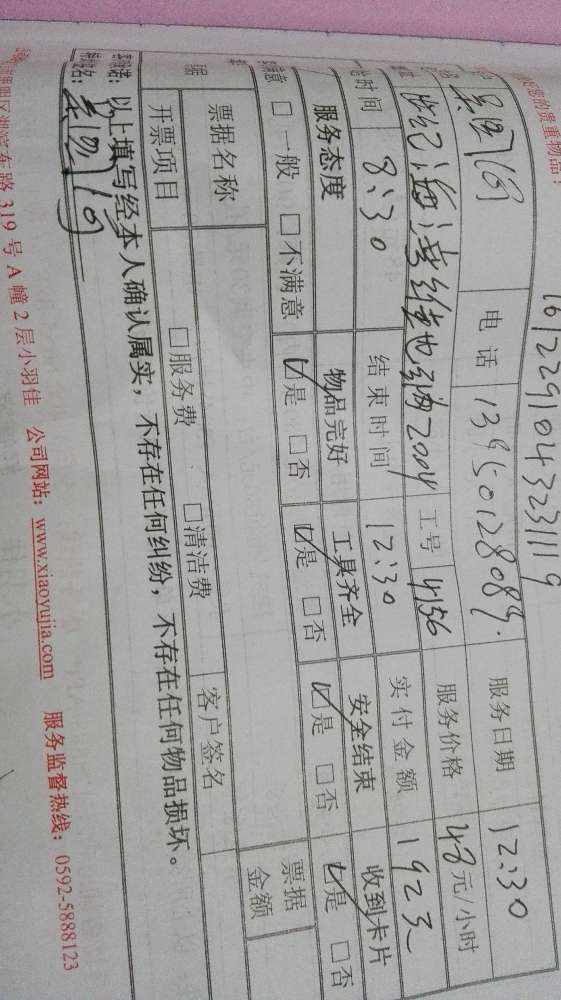 您的贵重物品!
16122910432311119
电话 13950128089. 服务日期 12:30
世纪海湾维也引力 2004 工号 4156 服务价格 48元/小时
时间 8:30 结束时间 12:30 实付金额 192元
服务态度 物品完好 工具齐全 安全结束 收到卡片
意 □一般 □不满意 ☑是 □否 ☑是 □否 ☑是 □否 ☑是 □否
票据名称 客户签名 票据金额
开票项目 □服务费 □清洁费
以上填写经本人确认属实,不存在任何纠纷,不存在任何物品损坏。
区湖滨东路 319 号 A 幢 2 层小羽佳 公司网站:www.xiaoyujia.com 服务监督热线:0592-5888123